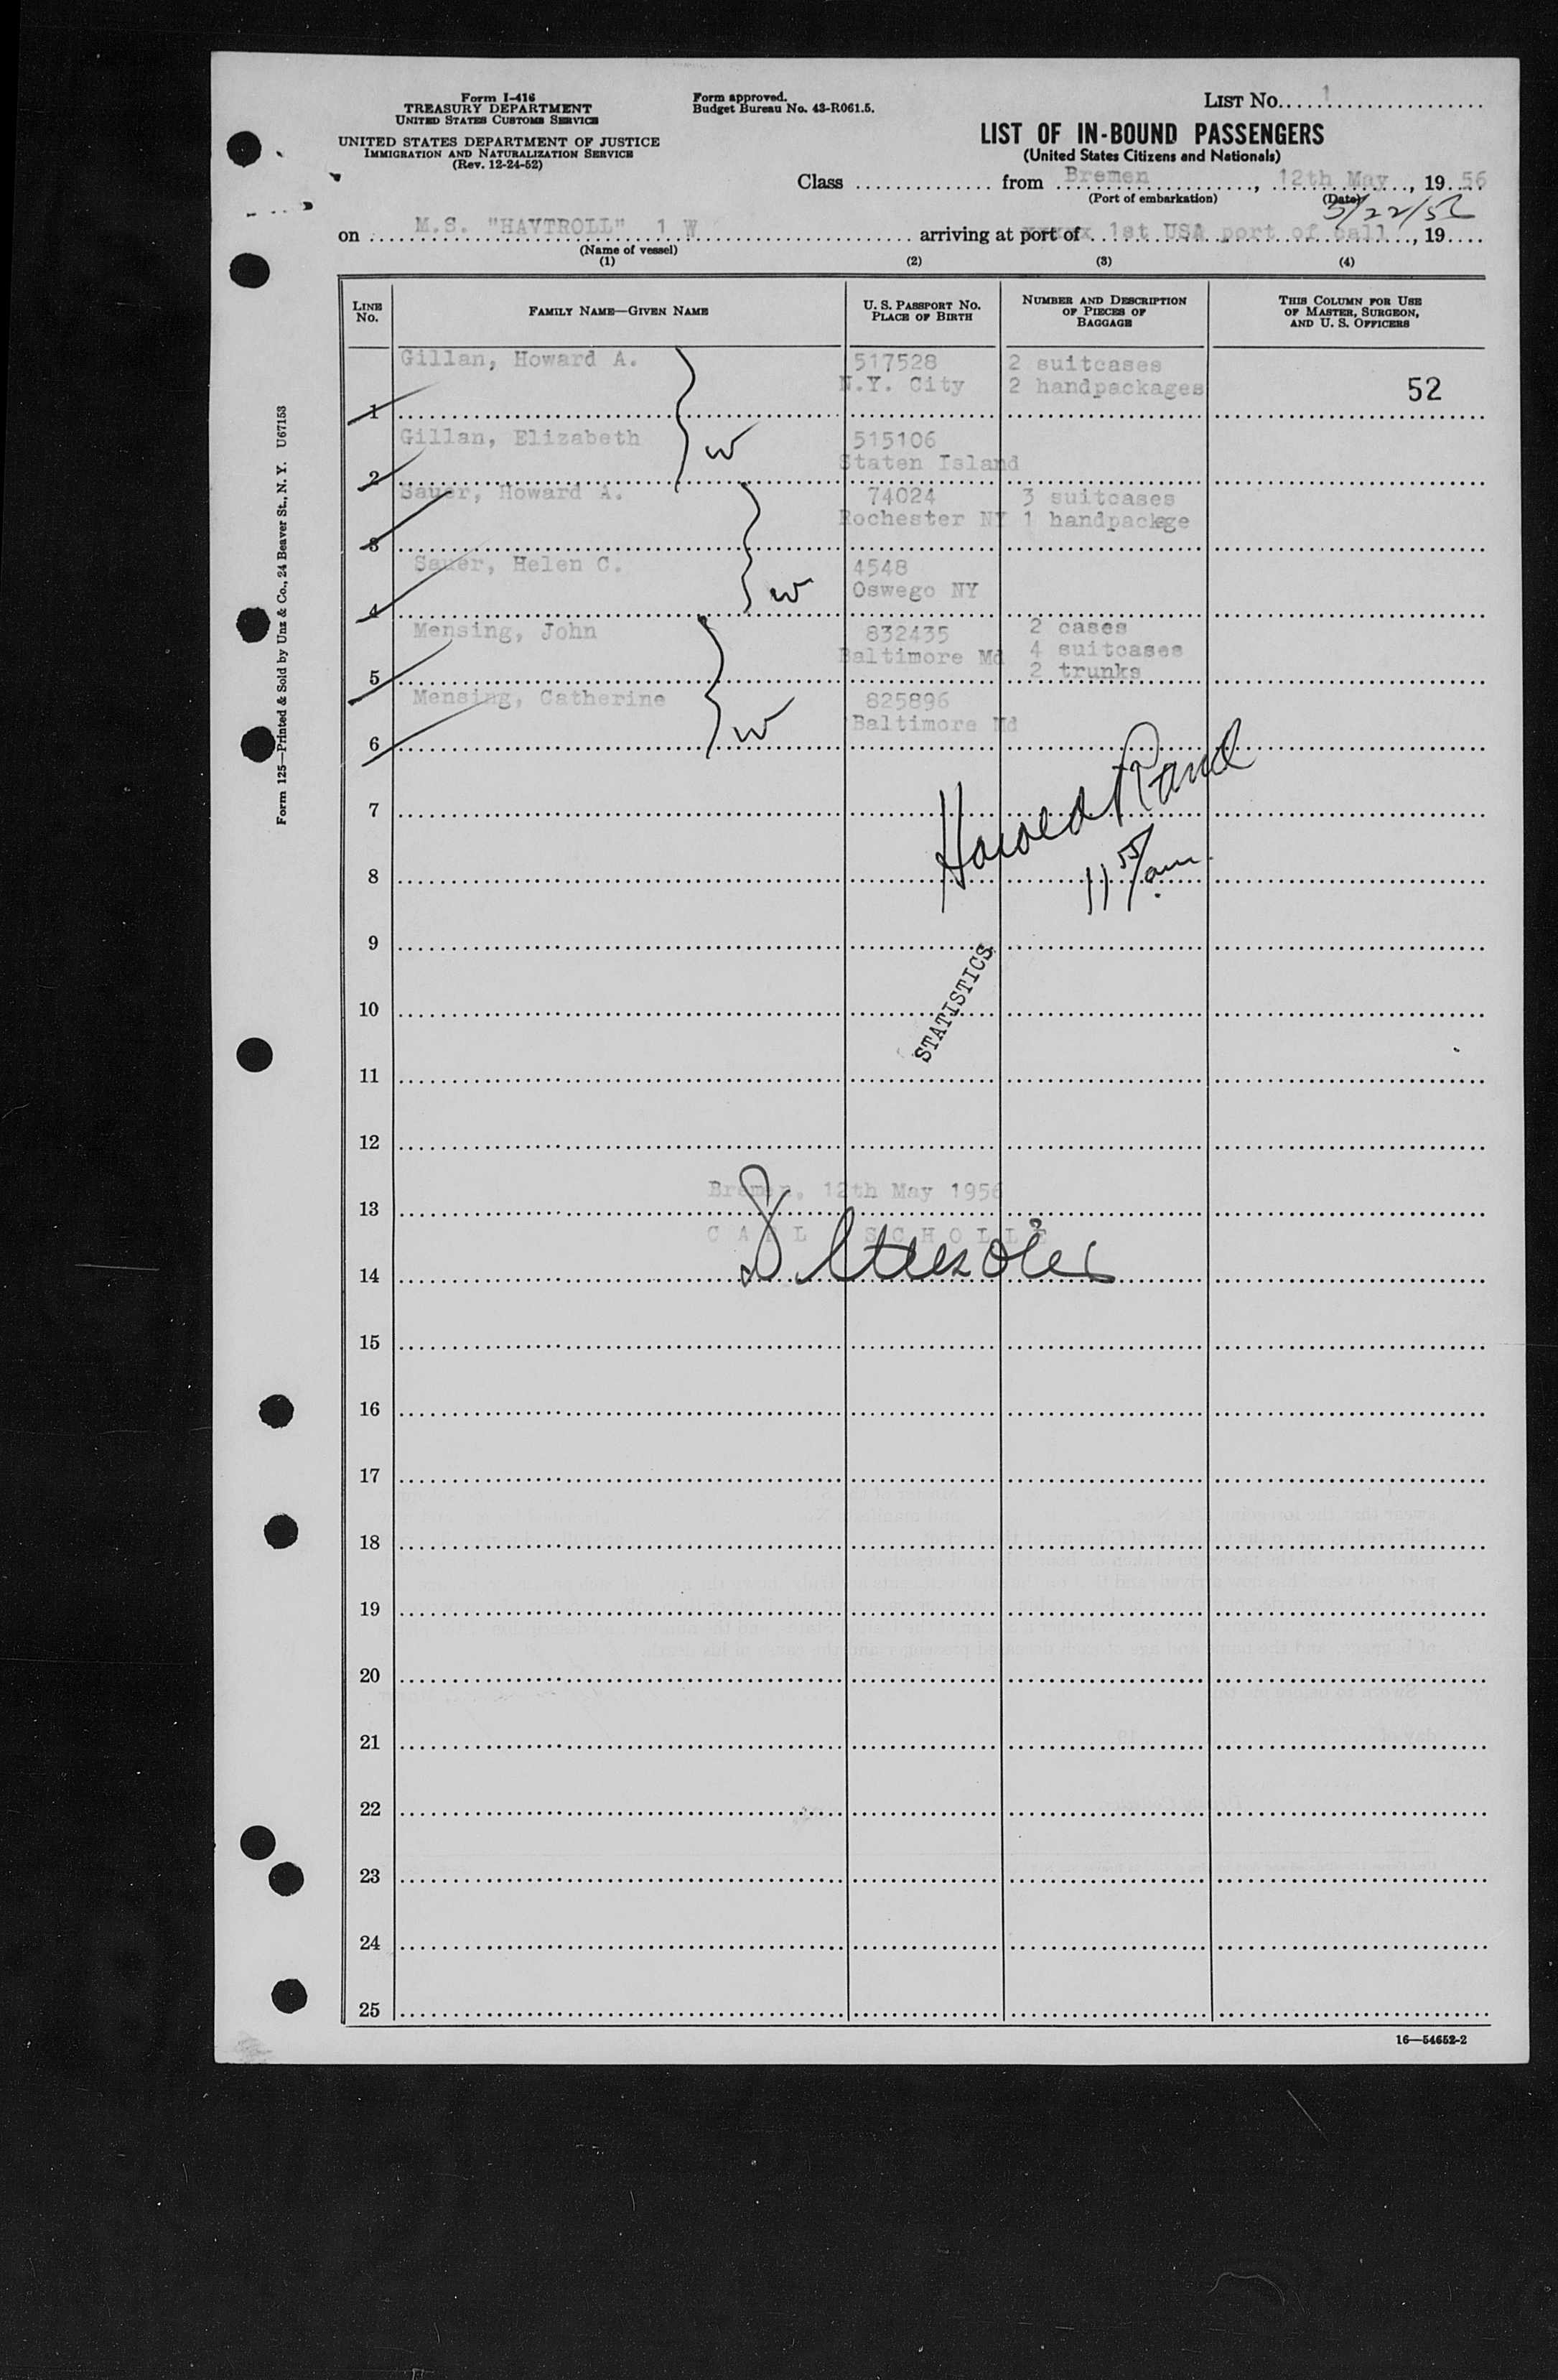 Form I-416
TREASURY DEPARTMENT
UNITED STATES CUSTOMS SERVICE
UNITED STATES DEPARTMENT OF JUSTICE
IMMIGRATION AND NATURALIZATION SERVICE
(Rev. 12-24-52)
Form approved.
Budget Bureau No. 43-R061.5.
LIST No. 1
LIST OF IN-BOUND PASSENGERS
(United States Citizens and Nationals)
Class from Bremen, 12th May, 1956
(Port of embarkation) (Date)
5/22/56
on M.S. "HAVTROLL" 1 W arriving at port of 1st USA port of call, 19
(Name of vessel)
(1) (2) (3) (4)
LINE No. FAMILY NAME—GIVEN NAME U. S. PASSPORT NO. PLACE OF BIRTH NUMBER AND DESCRIPTION OF PIECES OF BAGGAGE THIS COLUMN FOR USE OF MASTER, SURGEON, AND U. S. OFFICERS
Gillan, Howard A. 517528 2 suitcases
1 N.Y. City 2 handpackages 52
Gillan, Elizabeth 515106
w
2 Staten Island
Sauer, Howard A. 74024 3 suitcases
3 Rochester NY 1 handpackage
Sauer, Helen C. 4548
4 w Oswego NY
Mensing, John 832435 2 cases
Baltimore Md 4 suitcases
5 2 trunks
Mensing, Catherine 825896
w Baltimore Md
6
7
Harold Rand
8
11 55/am
9
10
STATISTICS
11
12
Bremen, 12th May 1956
13
CARL SCHOLLE
14
15
16
17
18
19
20
21
22
23
24
25
16—54652-2
Form 125—Printed & Sold by Unz & Co., 24 Beaver St., N. Y. U67153